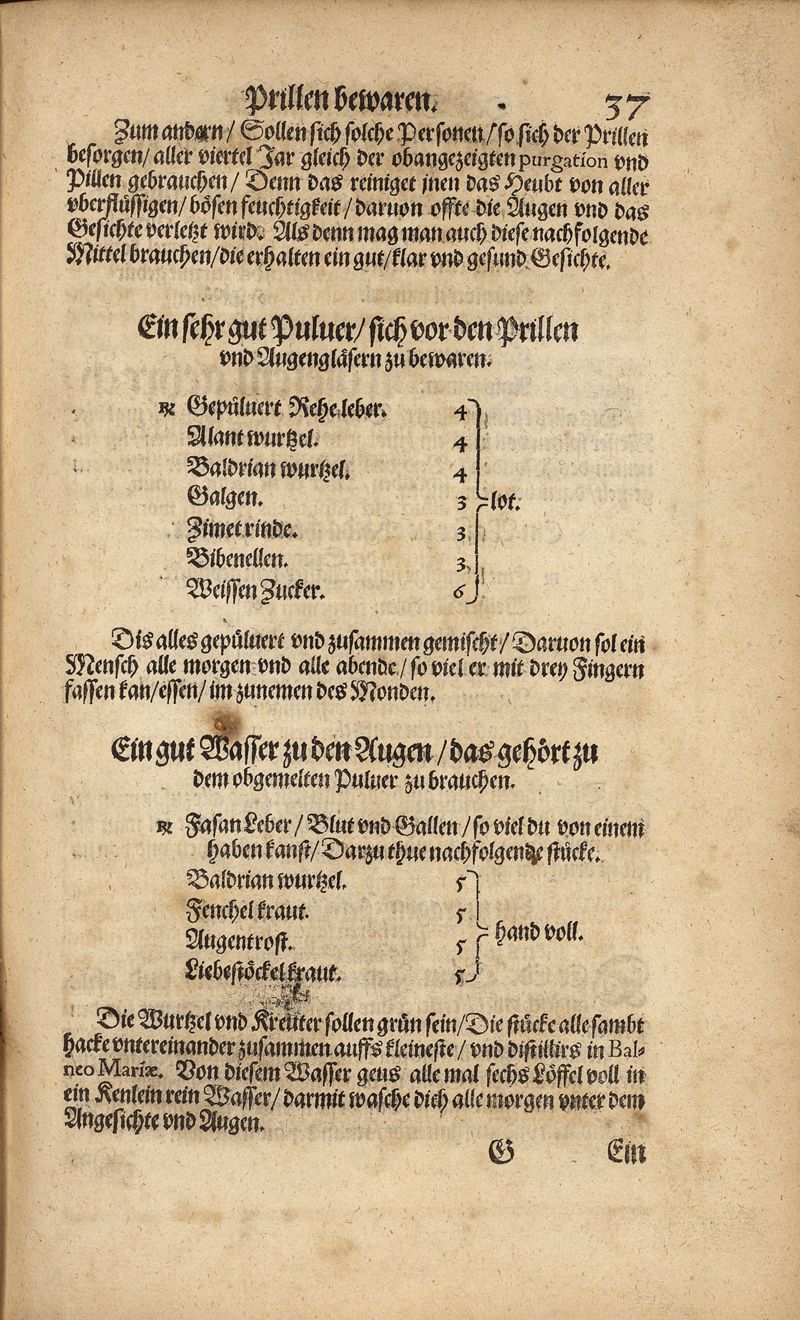 Prillen bewaren. 37
Zum andern/ Sollen sich solche Personen/ so sich der Prillen
besorgen/ aller viertel Jar gleich der obangezeigten purgation vnd
Pillen gebrauchen/ Denn das reiniget jnen das Heubt von aller
vberflüssigen/ bösen feuchtigkeit/ daruon offte die Augen vnd das
Gesichte verletzt wird. Als denn mag man auch diese nachfolgende
Mittel brauchen/ die erhalten ein gut/ klar vnd gesund Gesichte.
Ein sehr gut Puluer/ sich vor den Prillen
vnd Augengläsern zu bewaren.
℞ Gepüluert Rehe leber. 4
Alant wurtzel. 4
Baldrian wurtzel. 4
Galgen. 3 lot.
Zimet rinde. 3
Bibenellen. 3
Weissen Zucker. 6
Dis alles gepüluert vnd zusammen gemischt/ Daruon sol ein
Mensch alle morgen vnd alle abende/ so viel er mit drey Fingern
fassen kan/ essen/ im zunemen des Monden.
Ein gut Wasser zu den Augen/ das gehört zu
dem obgemelten Puluer zu brauchen.
℞ Fasan Leber/ Blut vnd Gallen/ so viel du von einem
haben kanst/ Darzu thue nachfolgende stücke.
Baldrian wurtzel. 5
Fenchel kraut. 5
Augentrost. 5 hand voll.
Liebestöckel kraut. 5
Die Wurtzel vnd Kreuter sollen grün sein/ Die stücke alle sambt
hacke vntereinander zusammen auffs kleineste/ vnd distillirs in Bal⸗
neo Mariæ. Von diesem Wasser geus alle mal sechs Löffel voll in
ein Kenlein rein Wasser/ darmit wasche dich alle morgen vnter dem
Angesichte vnd Augen.
G Ein